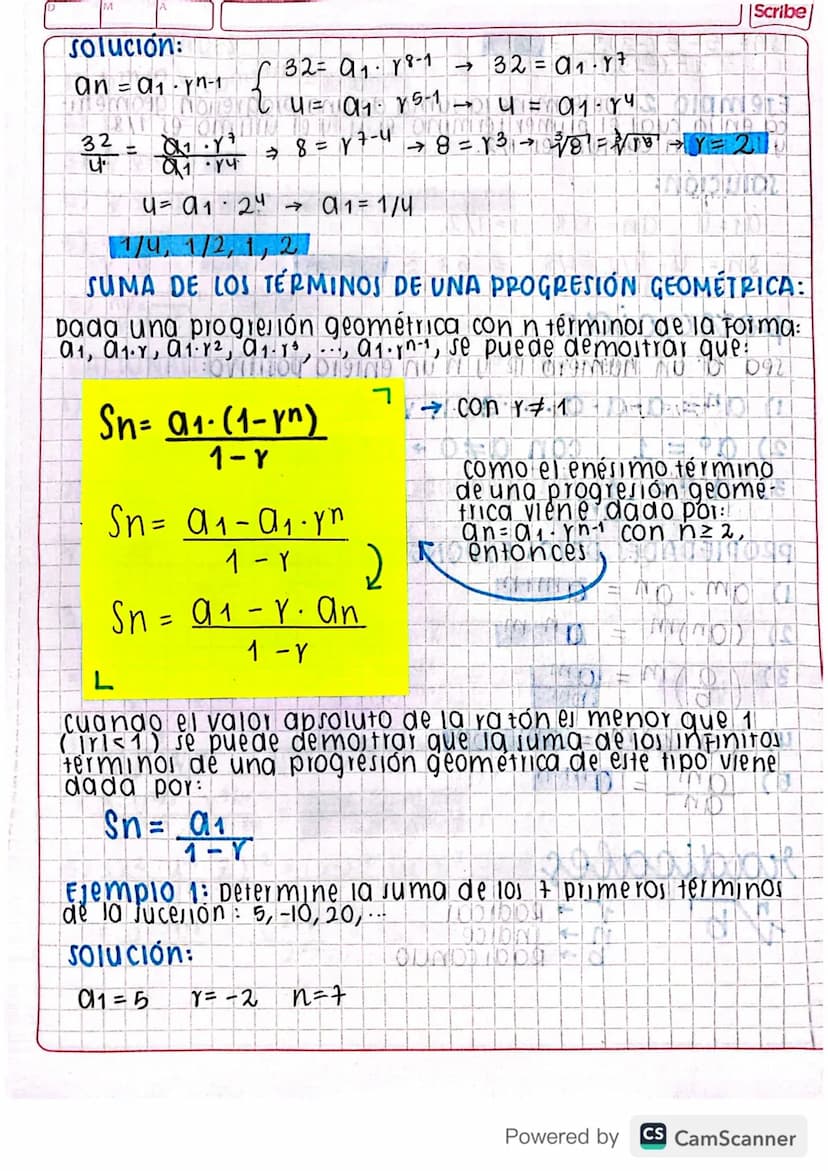 D M A
Scribe
Solución:
an = a1 · rn-1 { 32 = a1 · r8-1 → 32 = a1 · r7
4 = a1 · r5-1 → 4 = a1 · r4
32/4 = a1 · r7/a1 · r4 → 8 = r7-4 → 8 = r3 → ∛8 = ∛r3 → r = 2
4 = a1 · 24 → a1 = 1/4
1/4, 1/2, 1, 2
SUMA DE LOS TÉRMINOS DE UNA PROGRESIÓN GEOMÉTRICA:
Dada una progresión geométrica con n términos de la forma:
a1, a1·r, a1·r2, a1·r3, ..., a1·rn-1, se puede demostrar que:
Sn = a1·(1-rn)/1-r
→ con r ≠ 1
Sn = a1 - a1·rn/1-r
Sn = a1 - r·an/1-r
como el enésimo término
de una progresión geomé-
trica viene dado por:
an = a1·rn-1 con n≥2,
entonces
cuando el valor absoluto de la razón es menor que 1
(|r|<1) se puede demostrar que la suma de los infinitos
términos de una progresión geométrica de este tipo viene
dada por:
Sn = a1/1-r
Ejemplo 1: Determine la suma de los 7 primeros términos
de la sucesión: 5, -10, 20, ...
Solución:
a1 = 5 r = -2 n=7
Powered by CS CamScanner